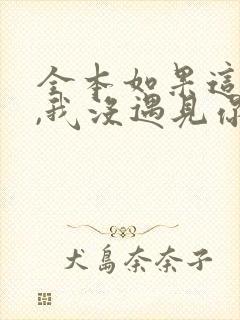 全本如果這
,我沒遇見你
犬島奈奈子